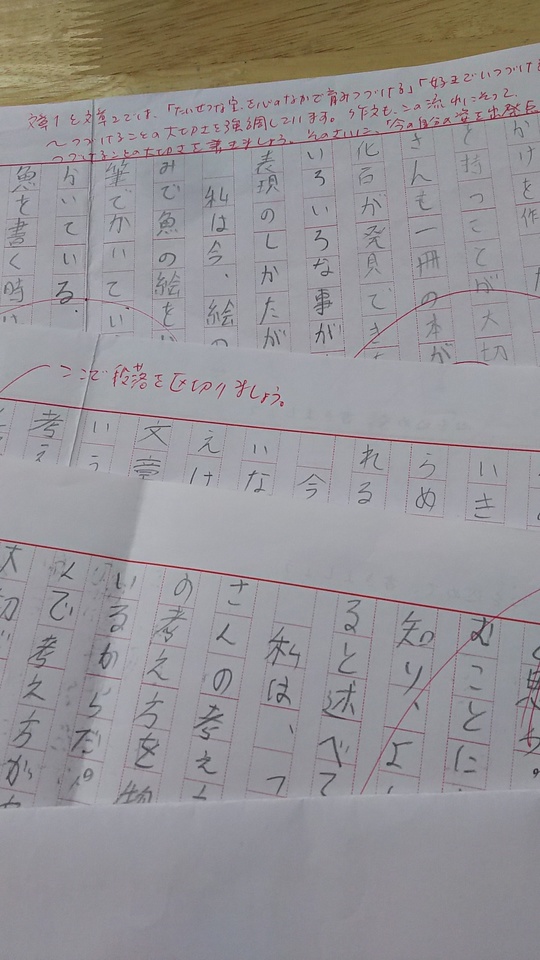 文章1と文章2では、「たいせつな宝を心のなかで育みつづける」「好きでいつづける」
〜つづけることの大切さを強調しています。作文も、この流れにそって、
つづけることの大切さを書きましょう。そのさいに、「今の自分の姿を出発点
かけを作
と持つことが大切
さんも一冊の本が
化石が発見でき
いろいろな事が
表現のしかたが
私は今、絵の
みで魚の絵を
筆でかいてい
かいている。
魚を書く時
ここで段落を区切りましょう。
いき
らめ
れる
今
いな
えけ
文章
いう
考え
むことに
知り、よ
ると述べて
私は、つ
さんの考え
の考え方を
いるからだ。
んで考え方が
大切